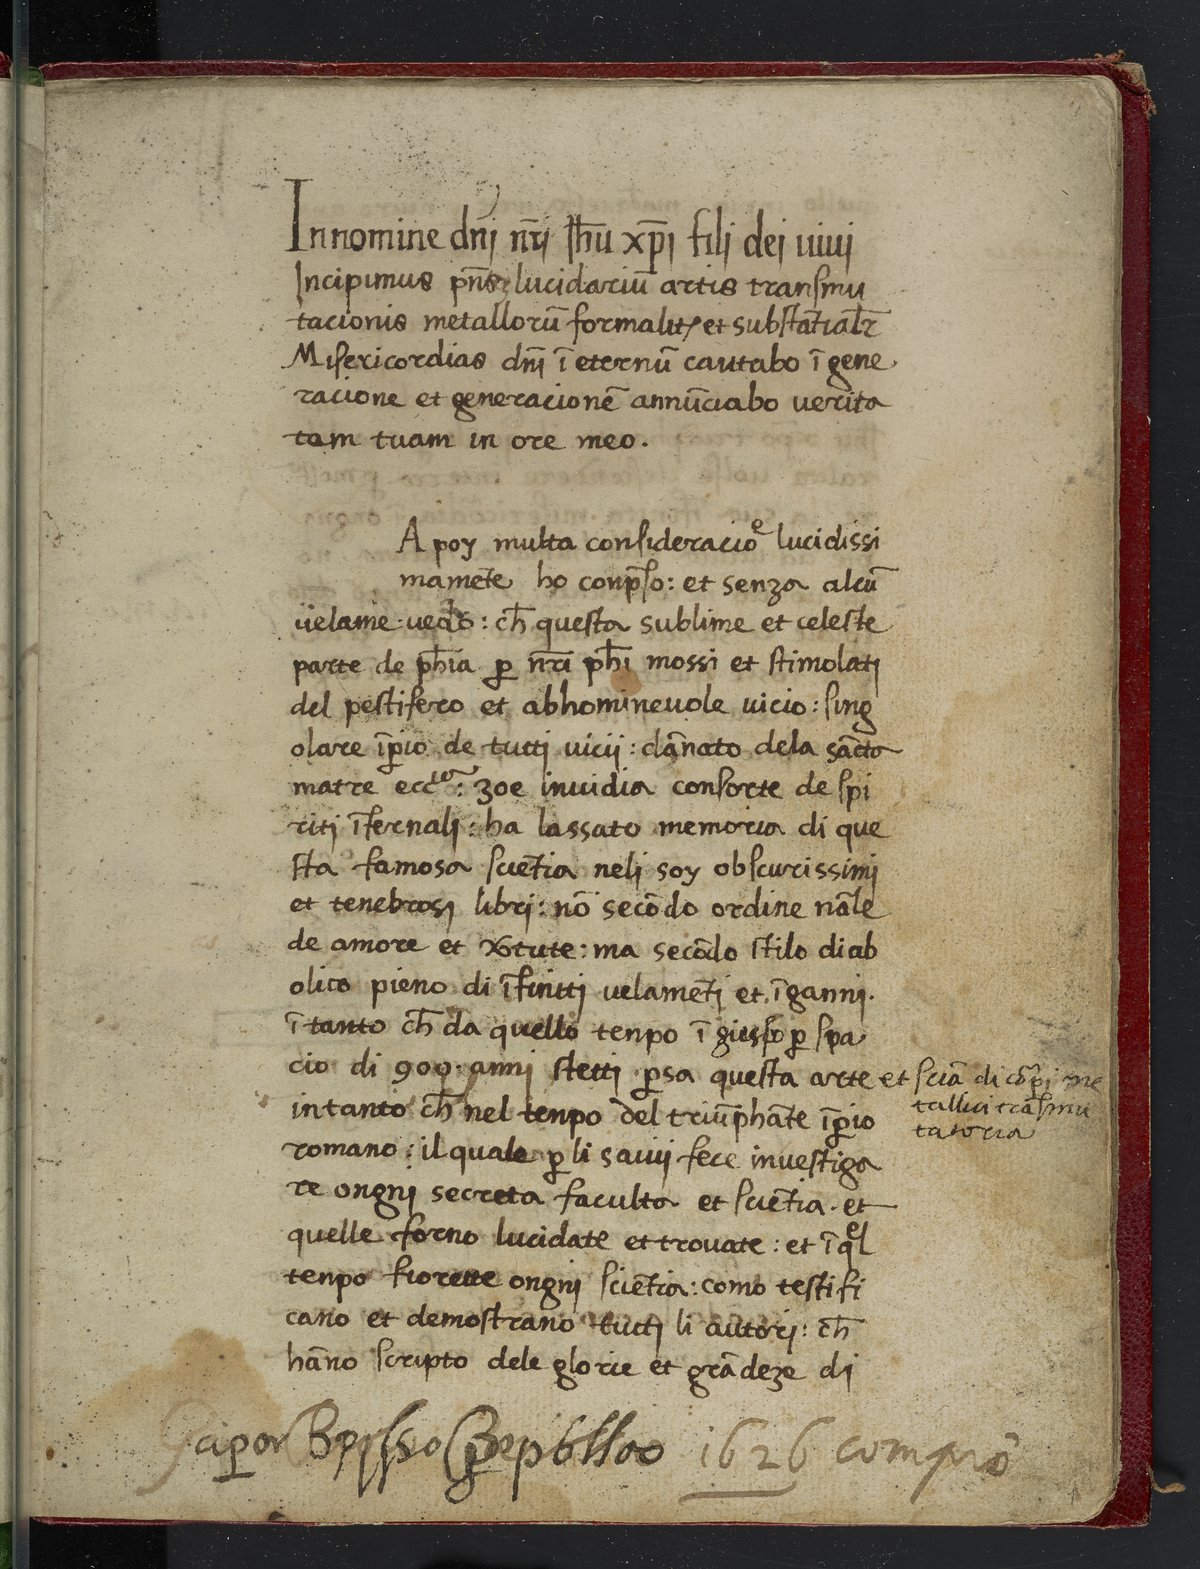 In nomine dn̄i nr̄i Jħū xp̄i filij dei uiui
Incipimus pn̄s lucidariū artis transmu
tacionis metallorū formalit et substātialr̄
Misericordias dn̄i ī eternū cantabo ī gene
racione et generacionē annūciabo verita
tem tuam in ore meo.
A poy multa consideracioe lucidissi
mamēte ho conp̄so: et senza alcū
uelame uedo: cħ questa sublime et celeste
parte de pħia ꝑ nr̄i pħi mossi et stimolati
del pestifero et abhomineuole uicio: sing
olare īꝑio de tutti uicij: dānato dela sācta
matre ecc̄a: zoe inuidia consorte de spi
riti īfernali: ha lassato memoria di que
sta famosa sciētia neli soy obscurissimi
et tenebrosi libri: nō secōdo ordine nāle
de amore et v̄tute: ma secōdo stilo diab
olico pieno di īfinitti uelamēti et īganni.
ī tanto cħ da quello tenpo ī giuso ꝑ spa
cio di 900 anni stetti ꝑsa questa arte et sciā di cōꝑi me
tallici trāsmu
tatoria
intanto cħ nel tenpo del triūphāte īꝑio
romano: il quale ꝑ li sauij fece inuestiga
re ongni secreta faculta et sciētia. et
quelle forno lucidate et trouate: et ī qel
tenpo fiorette ongni sciētia: como testifi
cano et demostrano tutti li autori: cħ
hāno scripto dele glorie et grādeze di
1626 comprò